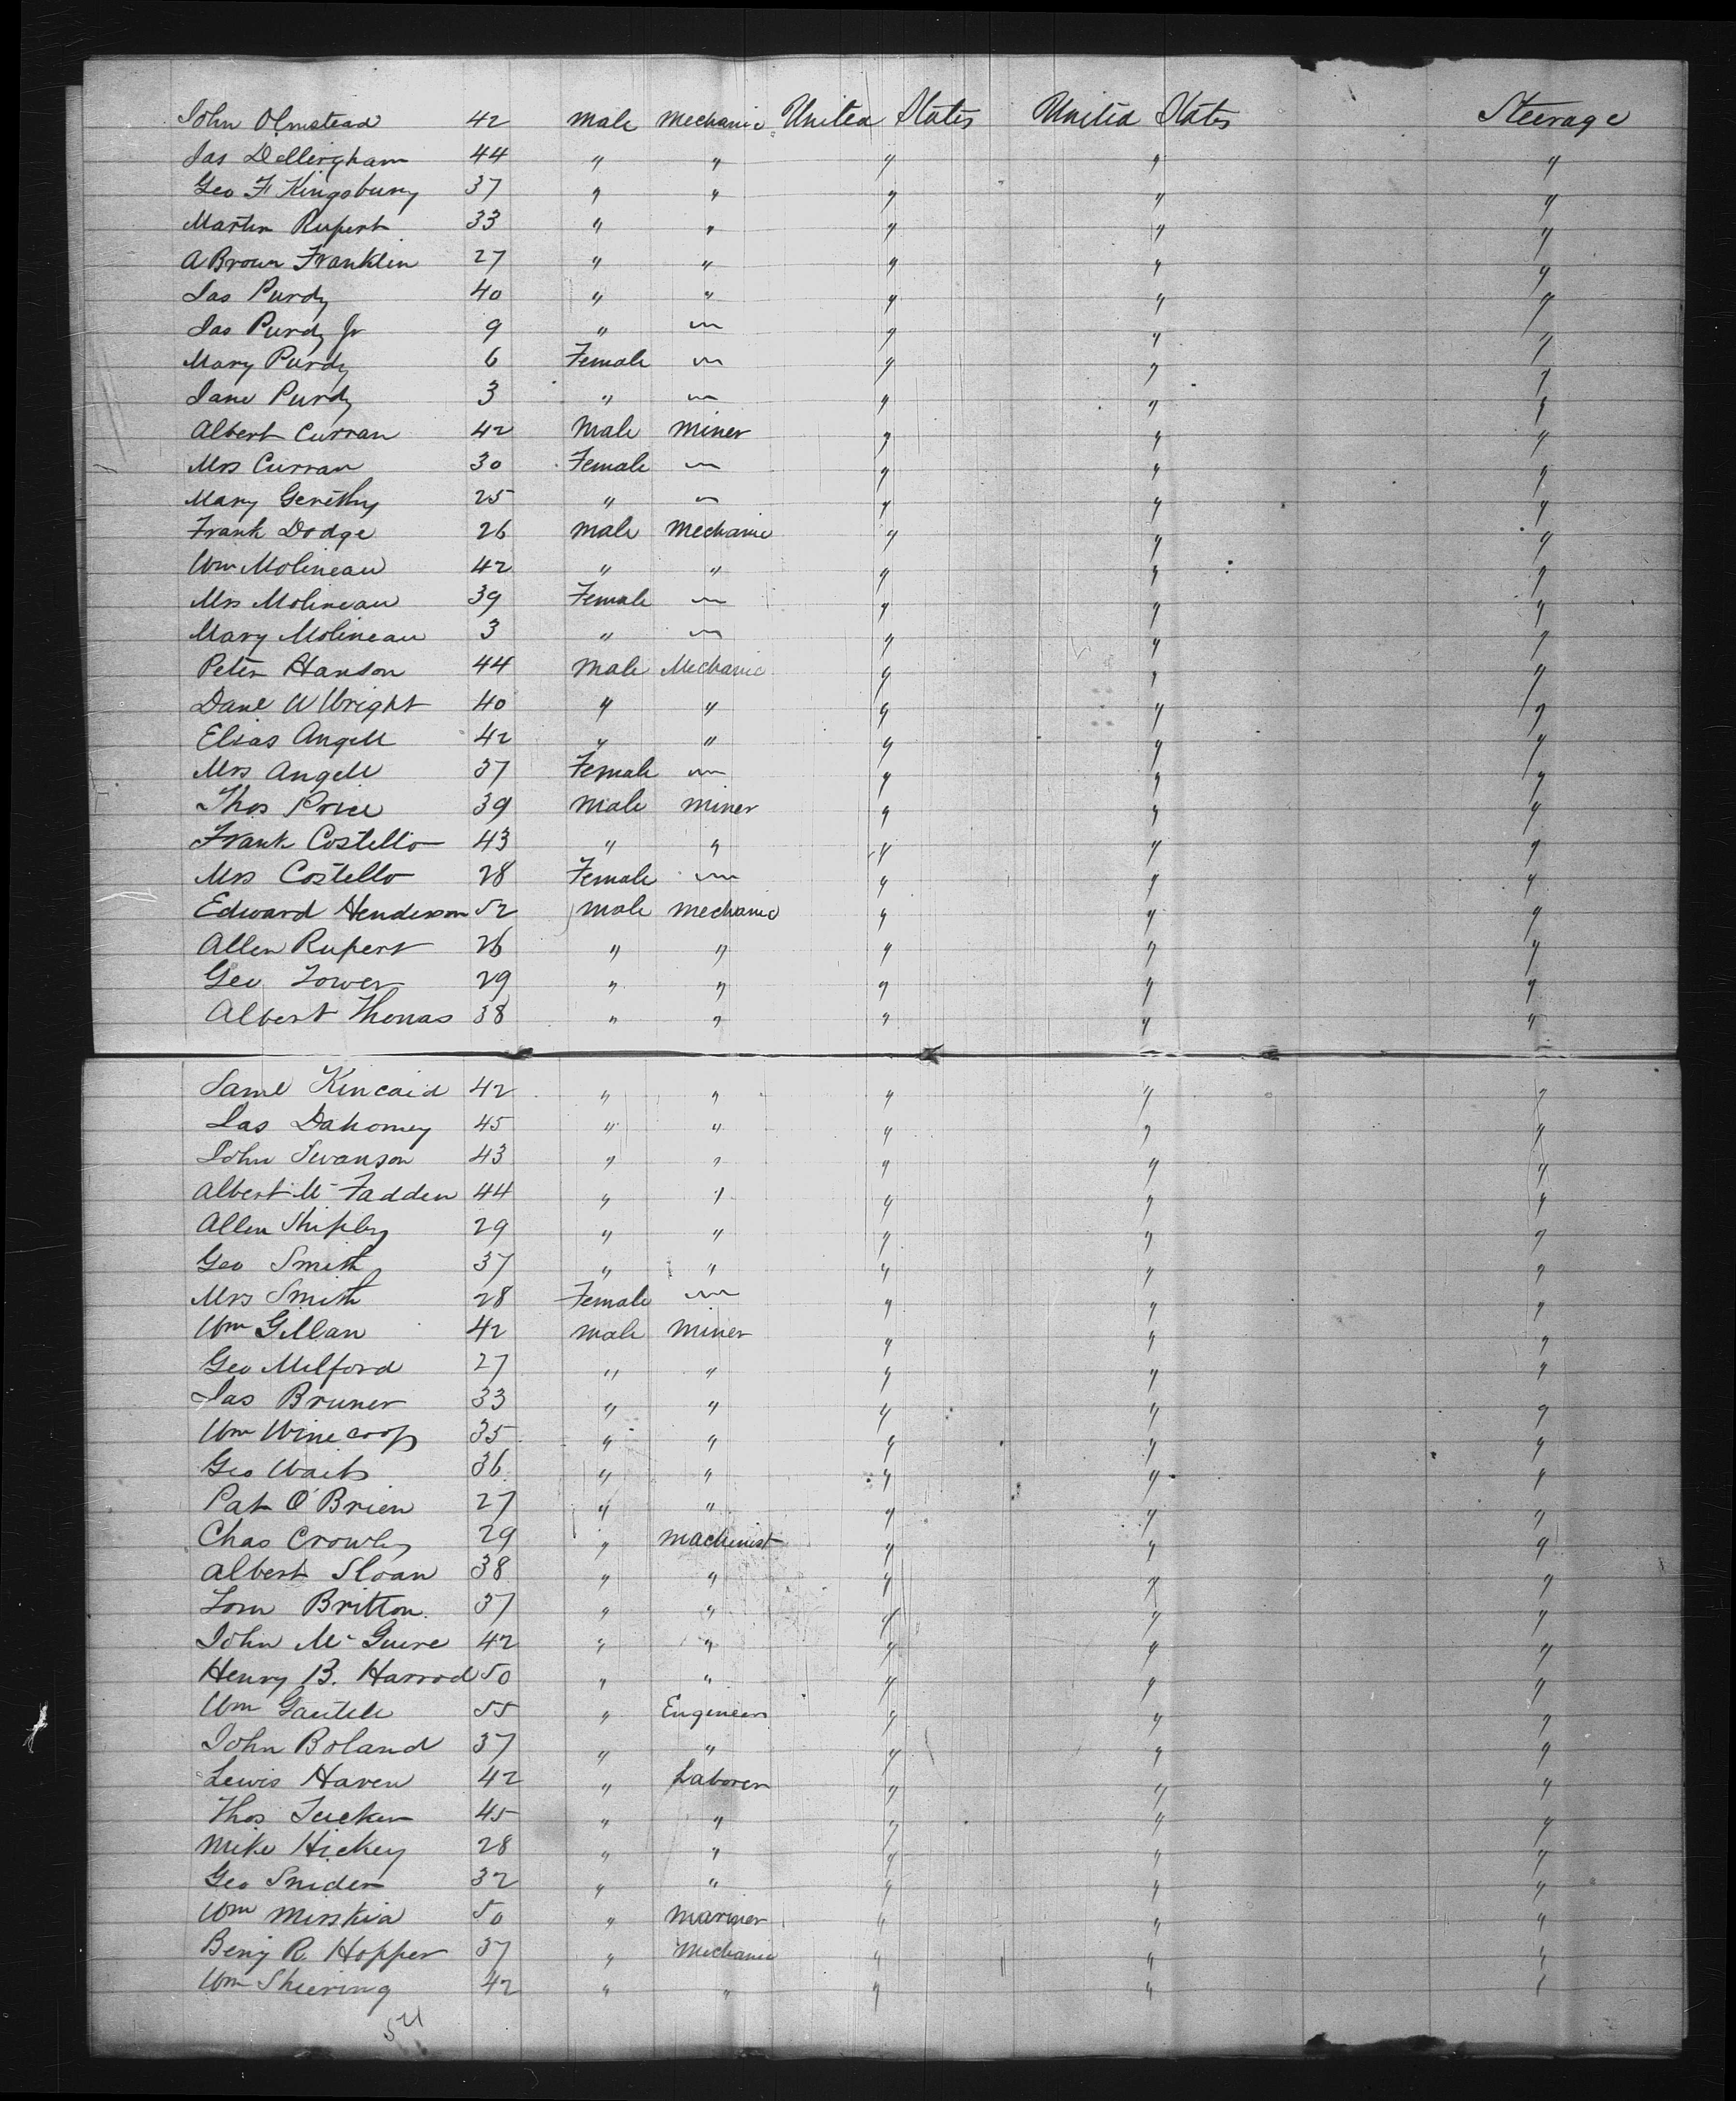 John Olmstead 42 Male Mechanic United States United States Steerage
Jas Dellingham 44 " " " " "
Geo F Kingsbury 37 " " " " "
Martin Rupert 33 " " " " "
A Brown Franklin 27 " " " " "
Jas Purdy 40 " " " " "
Jas Purdy Jr 9 " — " " "
Mary Purdy 6 Female — " " "
Jane Purdy 3 " — " " "
Albert Curran 42 Male Miner " " "
Mrs Curran 30 Female — " " "
Mary Gerethy 25 " — " " "
Frank Dodge 26 Male Mechanic " " "
Wm Molineau 42 " " " " "
Mrs Molineau 39 Female — " " "
Mary Molineau 3 " — " " "
Peter Hanson 44 Male Mechanic " " "
Danl W Wright 40 " " " " "
Elias Angell 42 " " " " "
Mrs Angell 37 Female — " " "
Thos Price 39 Male Miner " " "
Frank Costello 43 " " " " "
Mrs Costello 28 Female — " " "
Edward Henderson 52 Male Mechanic " " "
Allen Rupert 26 " " " " "
Geo Tower 29 " " " " "
Albert Thomas 38 " " " " "
Saml Kincaid 42 " " " " "
Jas Dahomey 45 " " " " "
John Swanson 43 " " " " "
Albert Mc Fadden 44 " " " " "
Allen Shipley 29 " " " " "
Geo Smith 37 " " " " "
Mrs Smith 28 Female — " " "
Wm Gillan 42 Male Miner " " "
Geo Milford 27 " " " " "
Jas Bruner 33 " " " " "
Wm Winecoop 35 " " " " "
Geo Waits 36 " " " " "
Pat O'Brien 27 " " " " "
Chas Crowley 29 " Machinist " " "
Albert Sloan 38 " " " " "
Tom Britton 37 " " " " "
John Mc Guire 42 " " " " "
Henry B. Harrod 50 " " " " "
Wm 55 " Engineer " " "
John Boland 37 " " " " "
Lewis Haven 42 " Laborer " " "
Thos Tucker 45 " " " " "
Mike Hickey 28 " " " " "
Geo Snider 32 " " " " "
Wm 50 " Mariner " " "
Benj R. Hopper 37 " Mechanic " " "
Wm Sheering 42 " " " " "
54